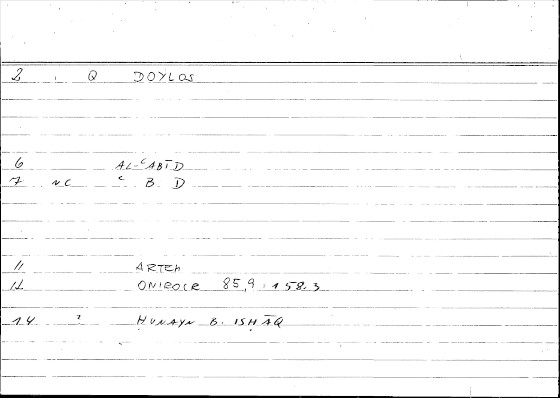 2 Q DOYLOS
6 AL-ʿABĪD
7 NC ʿ B D
11 ARTEM
12 ONIROCR 85,9 : 158.3
14 ? ḤUNAYN B. ISḤĀQ